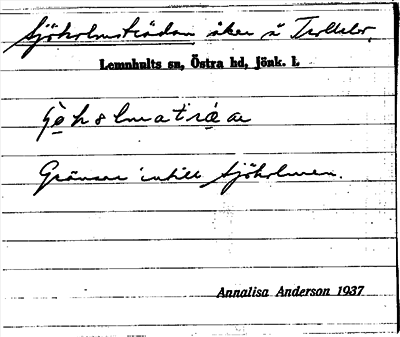 Sjöholmsträdan åker å Trollebo.
Lemnhults sn, Östra hd, Jönk. l.
Gränsar intill Sjöholmen.
Annalisa Anderson 1937